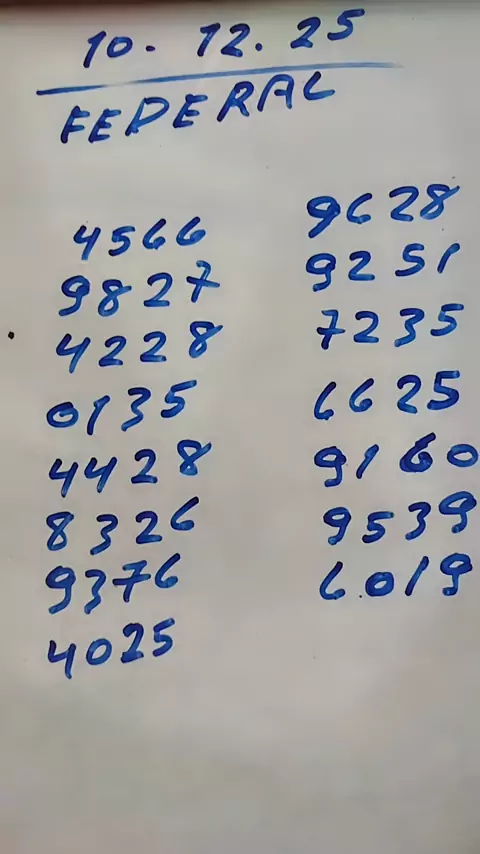 10. 12. 25
FEDERAL
4566
9827
4228
0135
4428
8326
9376
4025
9628
9251
7235
6625
9160
9539
6019